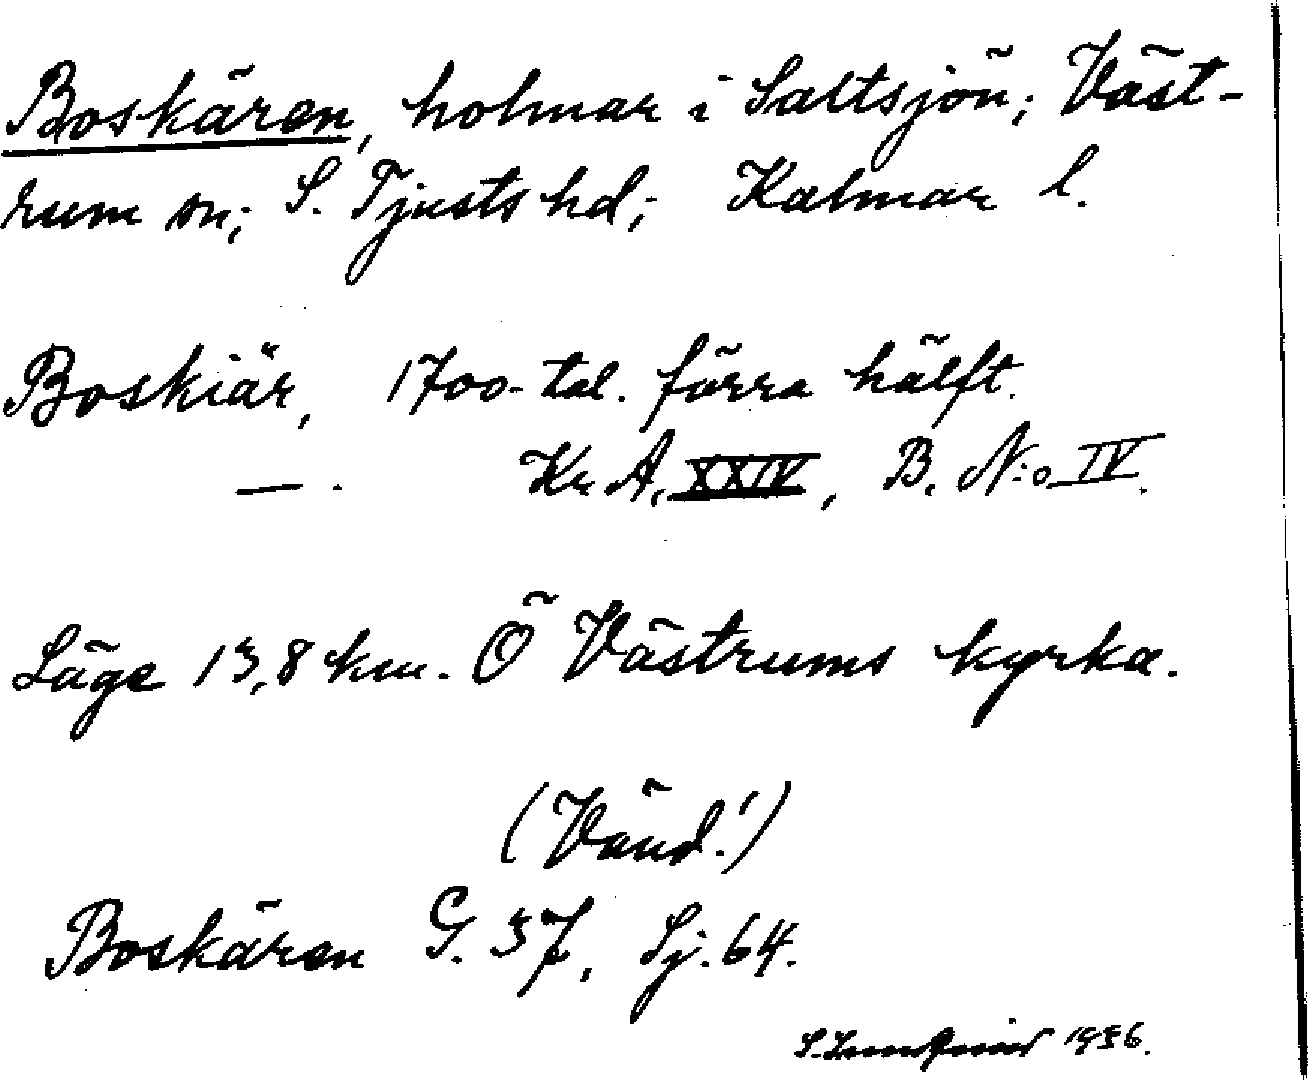 Boskären, holmar i Saltsjön; Väst-
rum sn; S. Tjusts hd; Kalmar l.
Boskiär, 1700-tal. förra hälft.
— . Kr. A. XXIV, B. N:o IV.
Läge 13,8 km. Ö Västrums kyrka.
(Vänd!)
Boskären G. 57, Sj. 64.
1936.